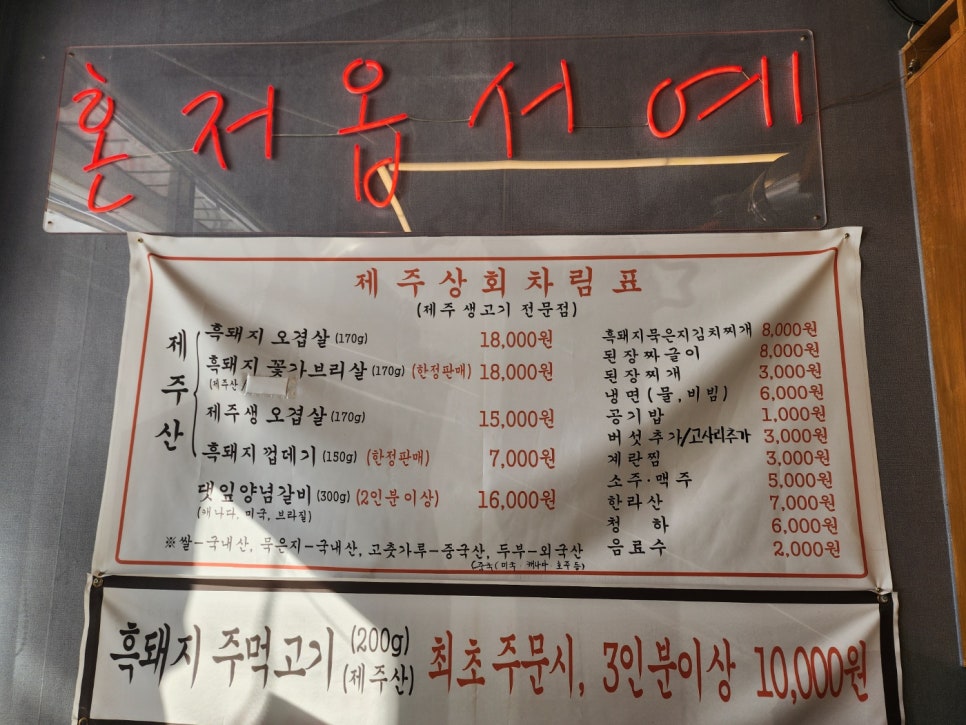 혼저옵서예
제주상회차림표
(제주 생고기 전문점)
제주산
흑돼지 오겹살 (170g) 18,000원
흑돼지 꽃가브리살 (170g) (한정판매) 18,000원
(제주산/
제주생 오겹살 (170g) 15,000원
흑돼지 껍데기 (150g) (한정판매) 7,000원
댓잎양념갈비 (300g) (2인분이상) 16,000원
(캐나다, 미국, 브라질)
흑돼지묵은지김치찌개 8,000원
된장짜글이 8,000원
된장찌개 3,000원
냉면(물,비빔) 6,000원
공기밥 1,000원
버섯추가/고사리추가 3,000원
계란찜 3,000원
소주·맥주 5,000원
한라산 7,000원
청하 6,000원
음료수 2,000원
※쌀-국내산, 묵은지-국내산, 고춧가루-중국산, 두부-외국산
미국 캐나다 호주등)
흑돼지 주먹고기 (200g) (제주산) 최초주문시, 3인분이상 10,000원